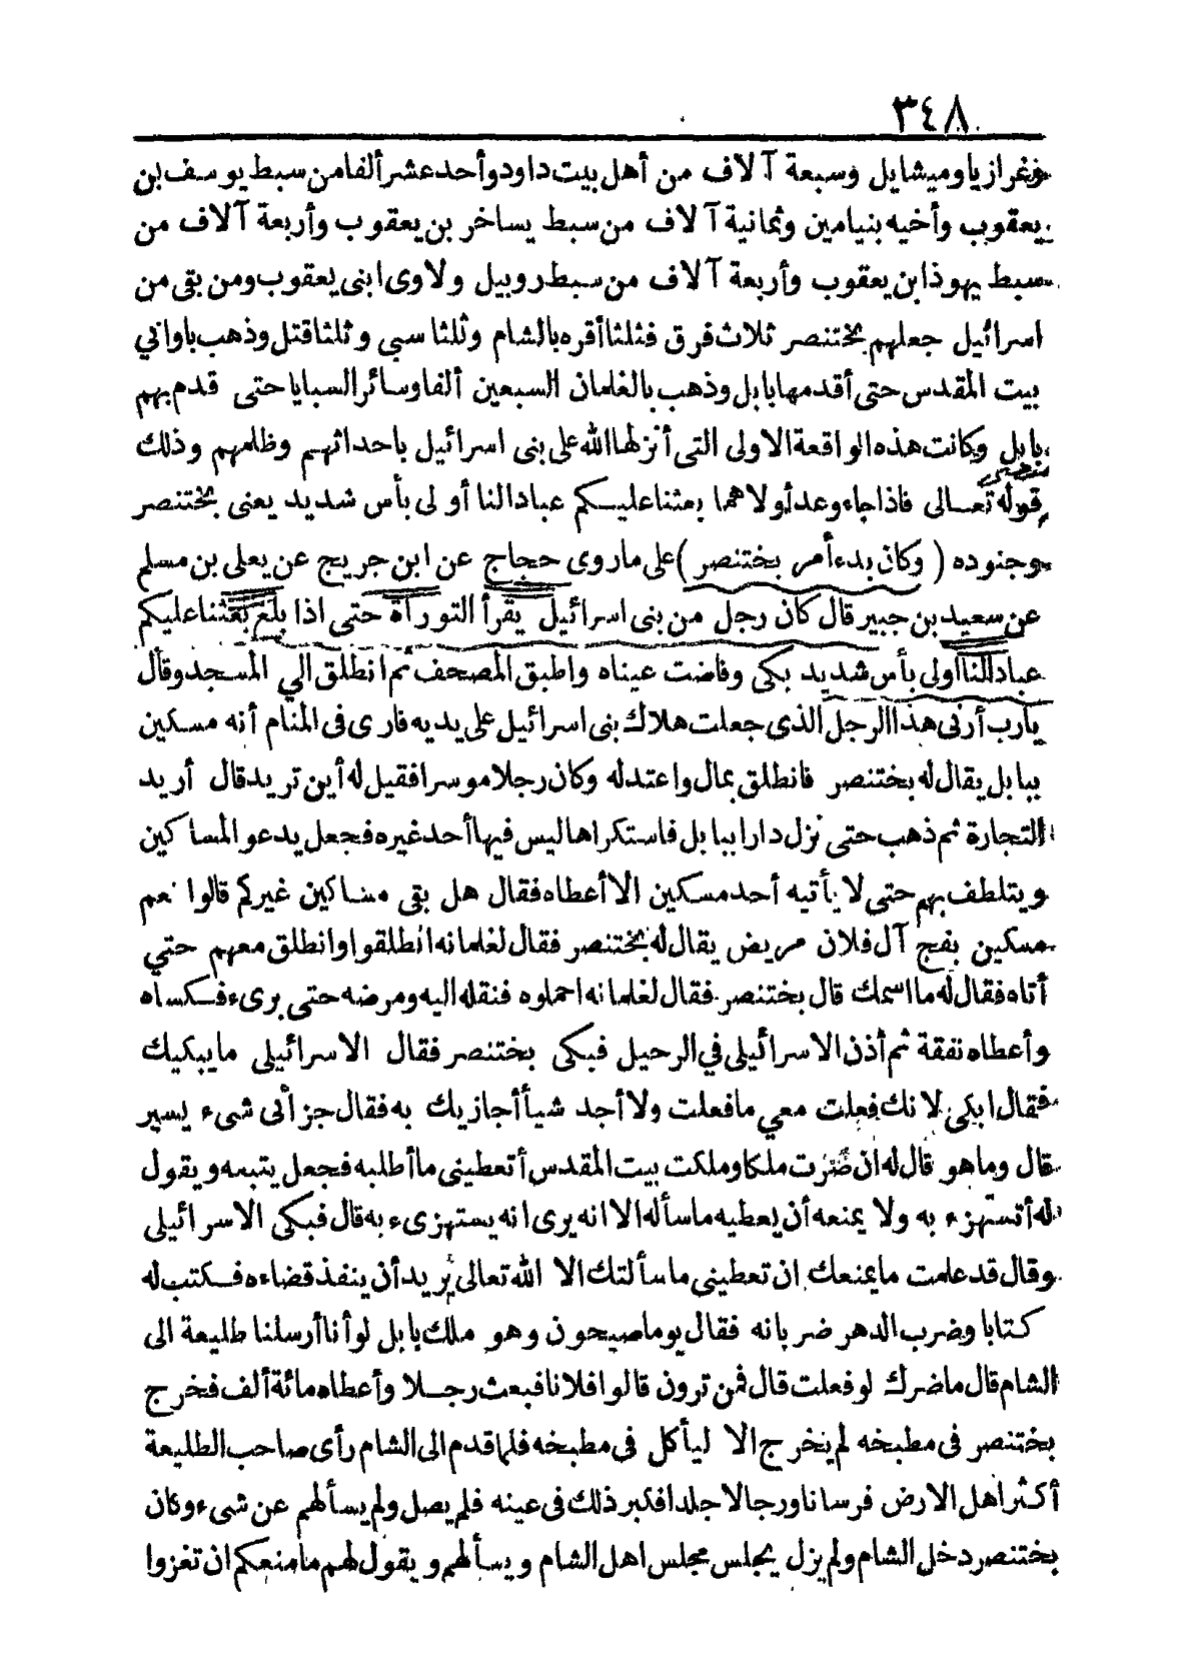 ٣٤٨
وغرازيا وميشايل وسبعة آلاف من أهل بيت داود وأحد عشر ألفا من سبط يوسف بن
يعقوب وأخيه بنيامين وثمانية آلاف من سبط يساخر بن يعقوب وأربعة آلاف من
سبط يهوذا بن يعقوب وأربعة آلاف من سبط روبيل ولاوى ابنى يعقوب ومن بقى من
اسرائيل جعلهم بختنصر ثلاث فرق فثلثا أقره بالشام وثلثا سبى وثلثا قتل وذهب باوانى
بيت المقدس حتى أقدمها بابل وذهب بالغلمان السبعين ألفا وسائر السبايا حتى قدم بهم
بابل وكانت هذه الواقعة الاولى التى أنزلها الله على بنى اسرائيل باحداثهم وظلمهم وذلك
قوله تعالى فاذا جاء وعد أولاهما بعثنا عليكم عبادا لنا أولى بأس شديد يعنى بختنصر
وجنوده (وكان بدء أمر بختنصر) على ما روى حجاج عن ابن جريج عن يعلى بن مسلم
عن سعيد بن جبير قال كان رجل من بنى اسرائيل يقرأ التوراة حتى اذا بلغ بعثنا عليكم
عبادا لنا أولى بأس شديد بكى وفاضت عيناه واطبق المصحف ثم انطلق الي المسجد وقال
يارب أرنى هذا الرجل الذى جعلت هلاك بنى اسرائيل على يديه فارى فى المنام أنه مسكين
ببابل يقال له بختنصر فانطلق بمال واعتد له وكان رجلا موسرا فقيل له أين تريد قال أريد
التجارة ثم ذهب حتى نزل دارا ببابل فاستكراها ليس فيها أحد غيره فجعل يدعو المساكين
ويتلطف بهم حتى لا يأتيه أحد مسكين الا أعطاه فقال هل بقى مساكين غيركم قالوا نعم
مسكين بفج آل فلان مريض يقال له بختنصر فقال لغلمانه انطلقوا وانطلق معهم حتي
أتاه فقال له ما اسمك قال بختنصر فقال لغلمانه احملوه فنقله اليه ومرضه حتى برىء فكساه
وأعطاه نفقة ثم أذن الاسرائيلى في الرحيل فبكى بختنصر فقال الاسرائيلى ما يبكيك
فقال ابكى لانك فعلت معي ما فعلت ولا أجد شيأ أجازيك به فقال جزائى شىء يسير
قال وما هو قال له ان صرت ملكا وملكت بيت المقدس أتعطينى ما أطلبه فجعل يتبعه ويقول
له أتستهزء به ولا يمنعه أن يعطيه ما سأله الا انه يرى انه يستهزىء به قال فبكى الاسرائيلى
وقال قد علمت ما يمنعك ان تعطينى ما سألتك الا الله تعالى يريد أن ينفذ قضاءه فكتب له
كتابا وضرب الدهر ضربانه فقال يوما صيحون وهو ملك بابل لو أنا أرسلنا طليعة الى
الشام قال ما ضرك لو فعلت قال فمن ترون قالوا فلانا فبعث رجلا وأعطاه مائة ألف فخرج
بختنصر فى مطبخه لم يخرج الا ليأكل فى مطبخه فلما قدم الى الشام رأى صاحب الطليعة
أكثر اهل الارض فرسانا ورجالا جلدا فكبر ذلك فى عينه فلم يصل ولم يسألهم عن شىء وكان
بختنصر دخل الشام ولم يزل يجلس مجلس اهل الشام ويسألهم ويقول لهم ما منعكم ان تغزوا